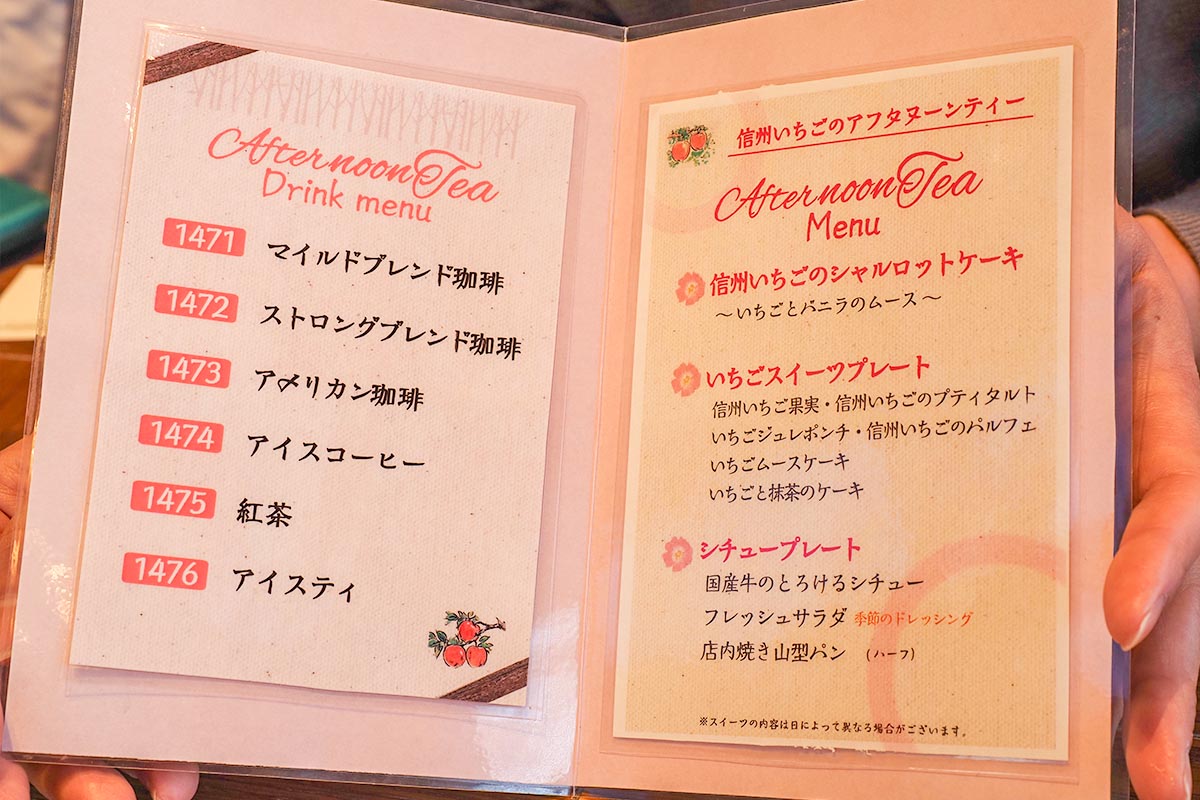 Afternoon Tea
Drink menu
1471 マイルドブレンド珈琲
1472 ストロングブレンド珈琲
1473 アメリカン珈琲
1474 アイスコーヒー
1475 紅茶
1476 アイスティ
信州いちごのアフタヌーンティー
Afternoon Tea
Menu
信州いちごのシャルロットケーキ
～いちごとバニラのムース～
いちごスイーツプレート
信州いちご果実・信州いちごのプティタルト
いちごジュレポンチ・信州いちごのパルフェ
いちごムースケーキ
いちごと抹茶のケーキ
シチュープレート
国産牛のとろけるシチュー
フレッシュサラダ 季節のドレッシング
店内焼き山型パン （ハーフ）
※スイーツの内容は日によって異なる場合がございます。